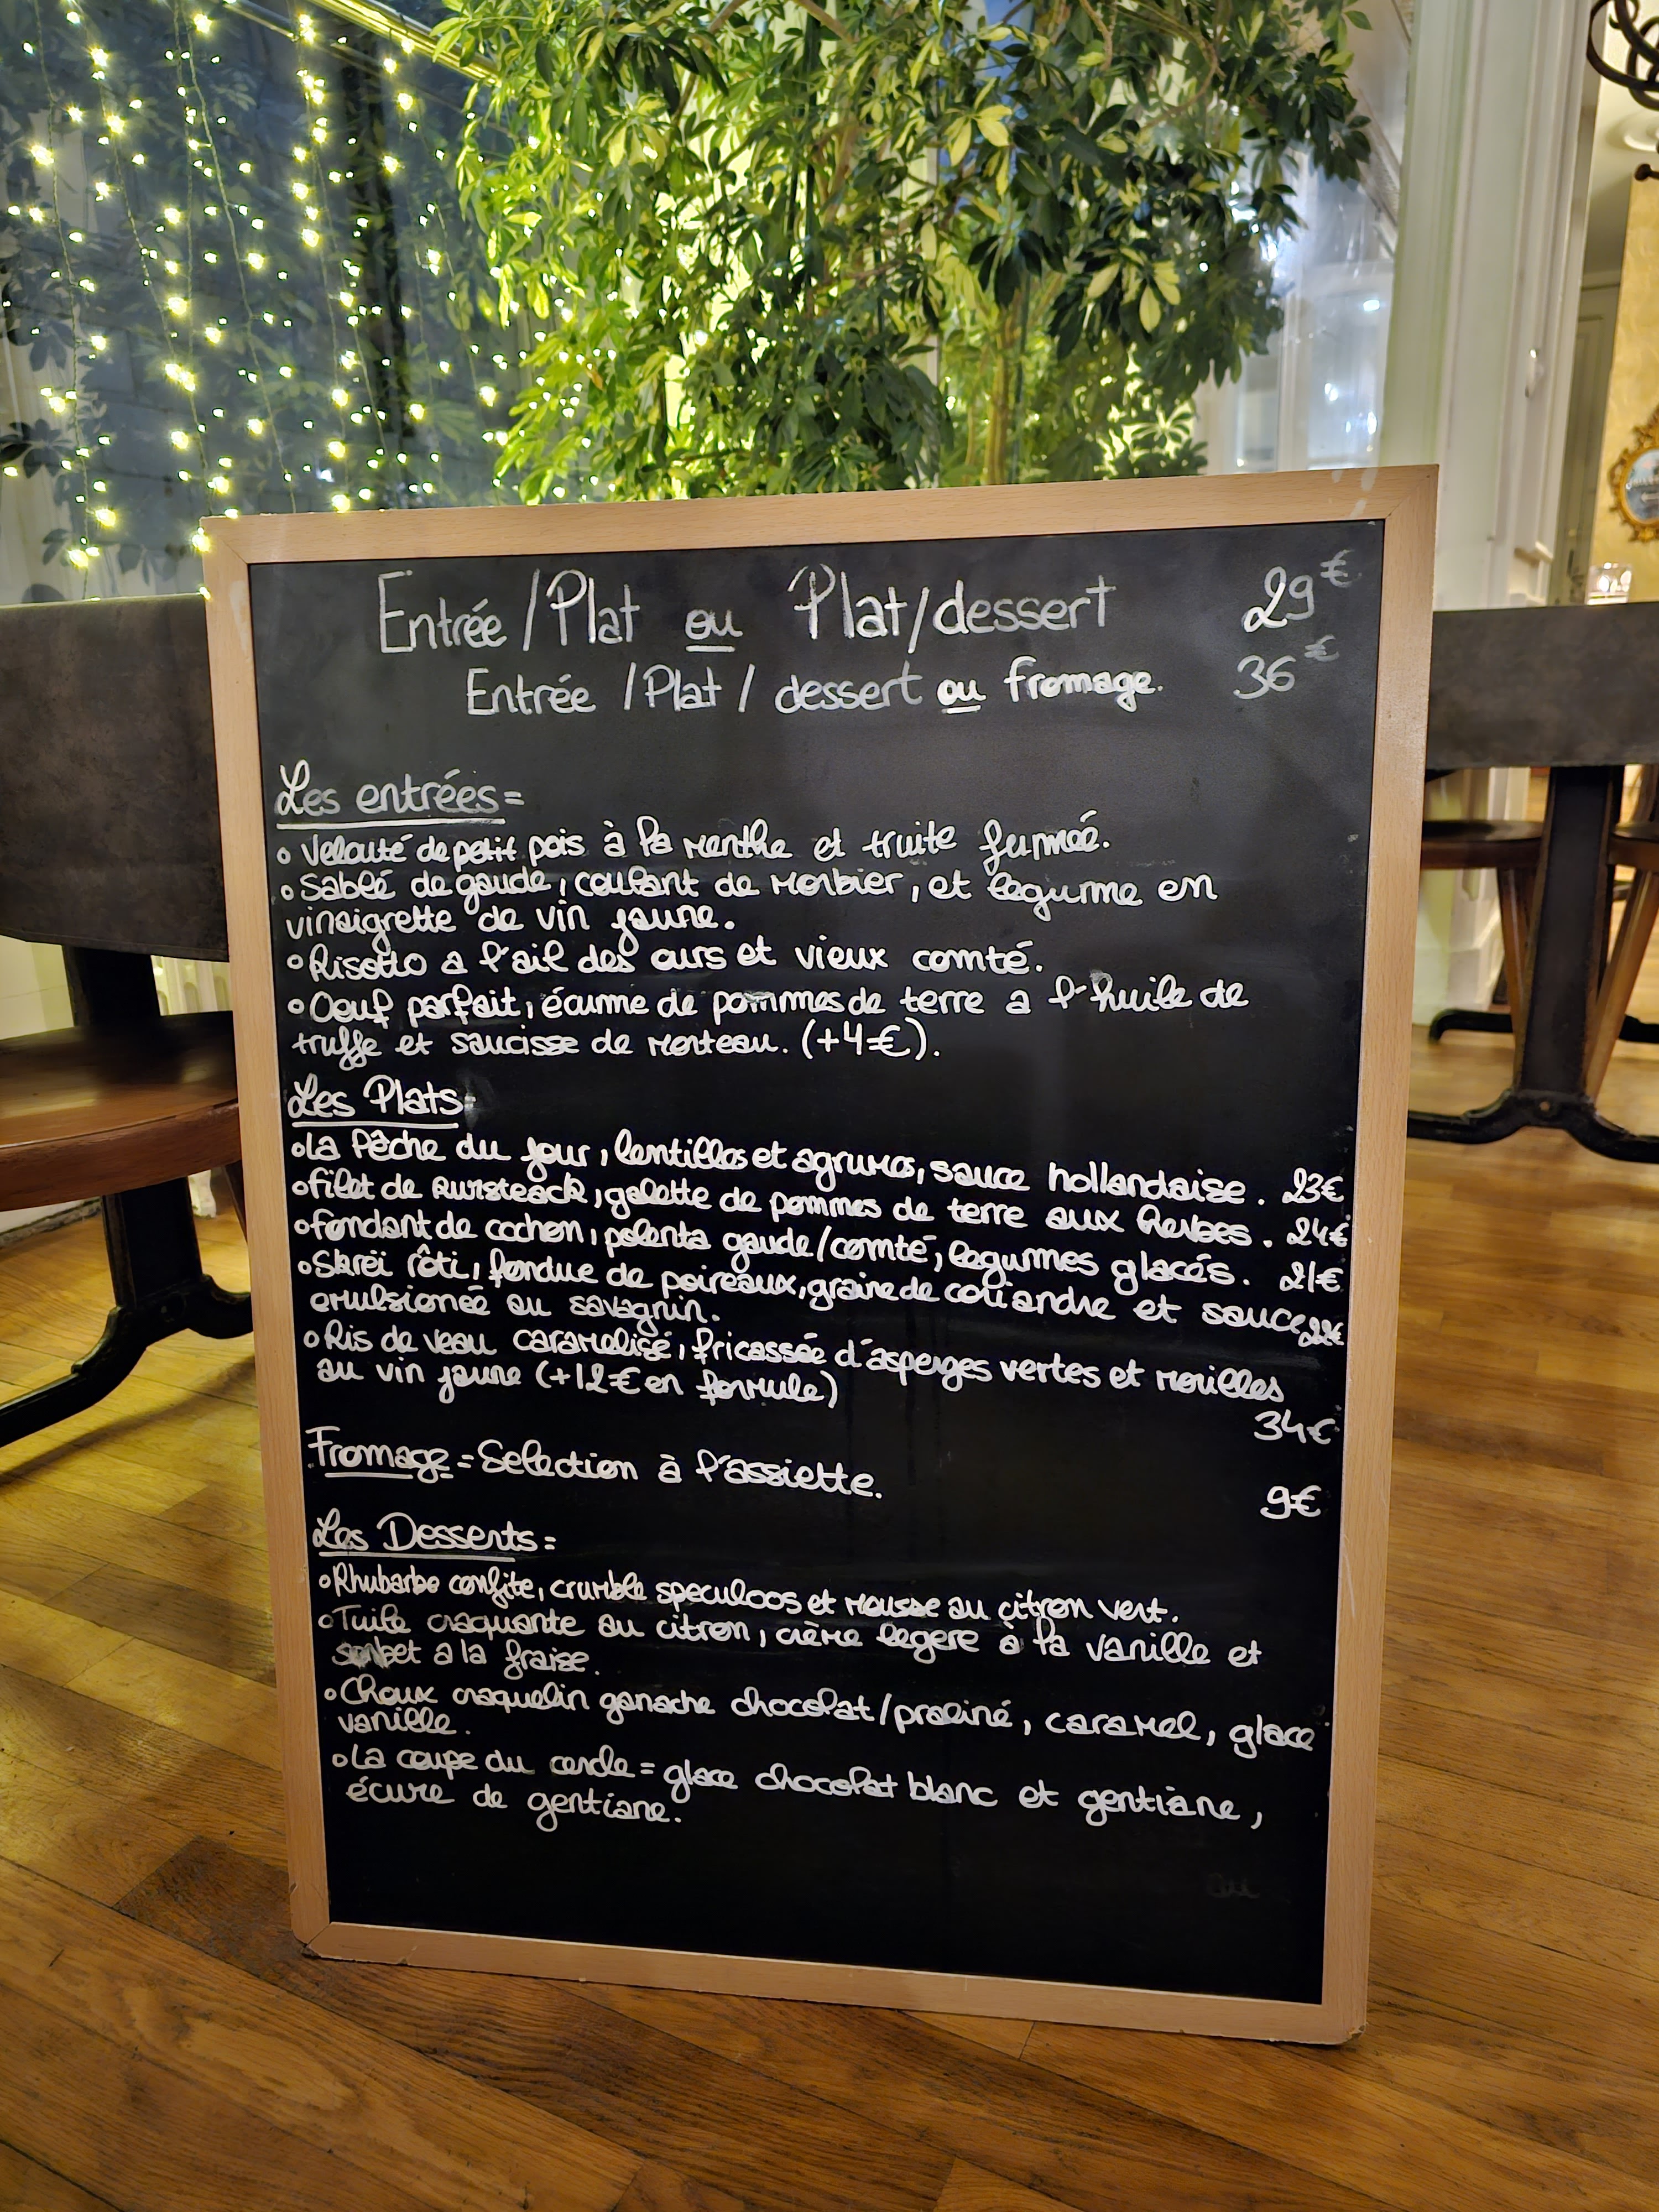 Entrée / Plat ou Plat/dessert 29€
Entrée / Plat / dessert ou fromage. 36€
Les entrées =
• Velouté de petit pois à la menthe et truite fumée.
• Sablé de gaude, coulant de Morbier, et legume en
vinaigrette de vin jaune.
• Risotto a l'ail des ours et vieux comté.
• Oeuf parfait, écume de pommes de terre a l'huile de
truffe et saucisse de Morteau. (+4€).
Les Plats
• La Pêche du jour, lentilles et agrumes, sauce hollandaise. 23€
• filet de Rumsteack, galette de pommes de terre aux herbes. 24€
• fondant de cochon, polenta gaude/comté, legumes glacés. 21€
• Skreï rôti, fondue de poireaux, graine de coriandre et sauce 22€
emulsionée au savagnin.
• Ris de veau caramelisé, fricassée d'asperges vertes et morilles
au vin jaune (+12€ en formule)
34€
Fromage = Selection à l'assiette.
9€
Les Desserts =
• Rhubarbe confite, crumble speculoos et mousse au citron vert.
• Tuile craquante au citron, crème legere à la vanille et
sorbet a la fraise.
• Choux craquelin ganache chocolat/praliné, caramel, glace
vanille.
• La coupe du cercle = glace chocolat blanc et gentiane,
écume de gentiane.